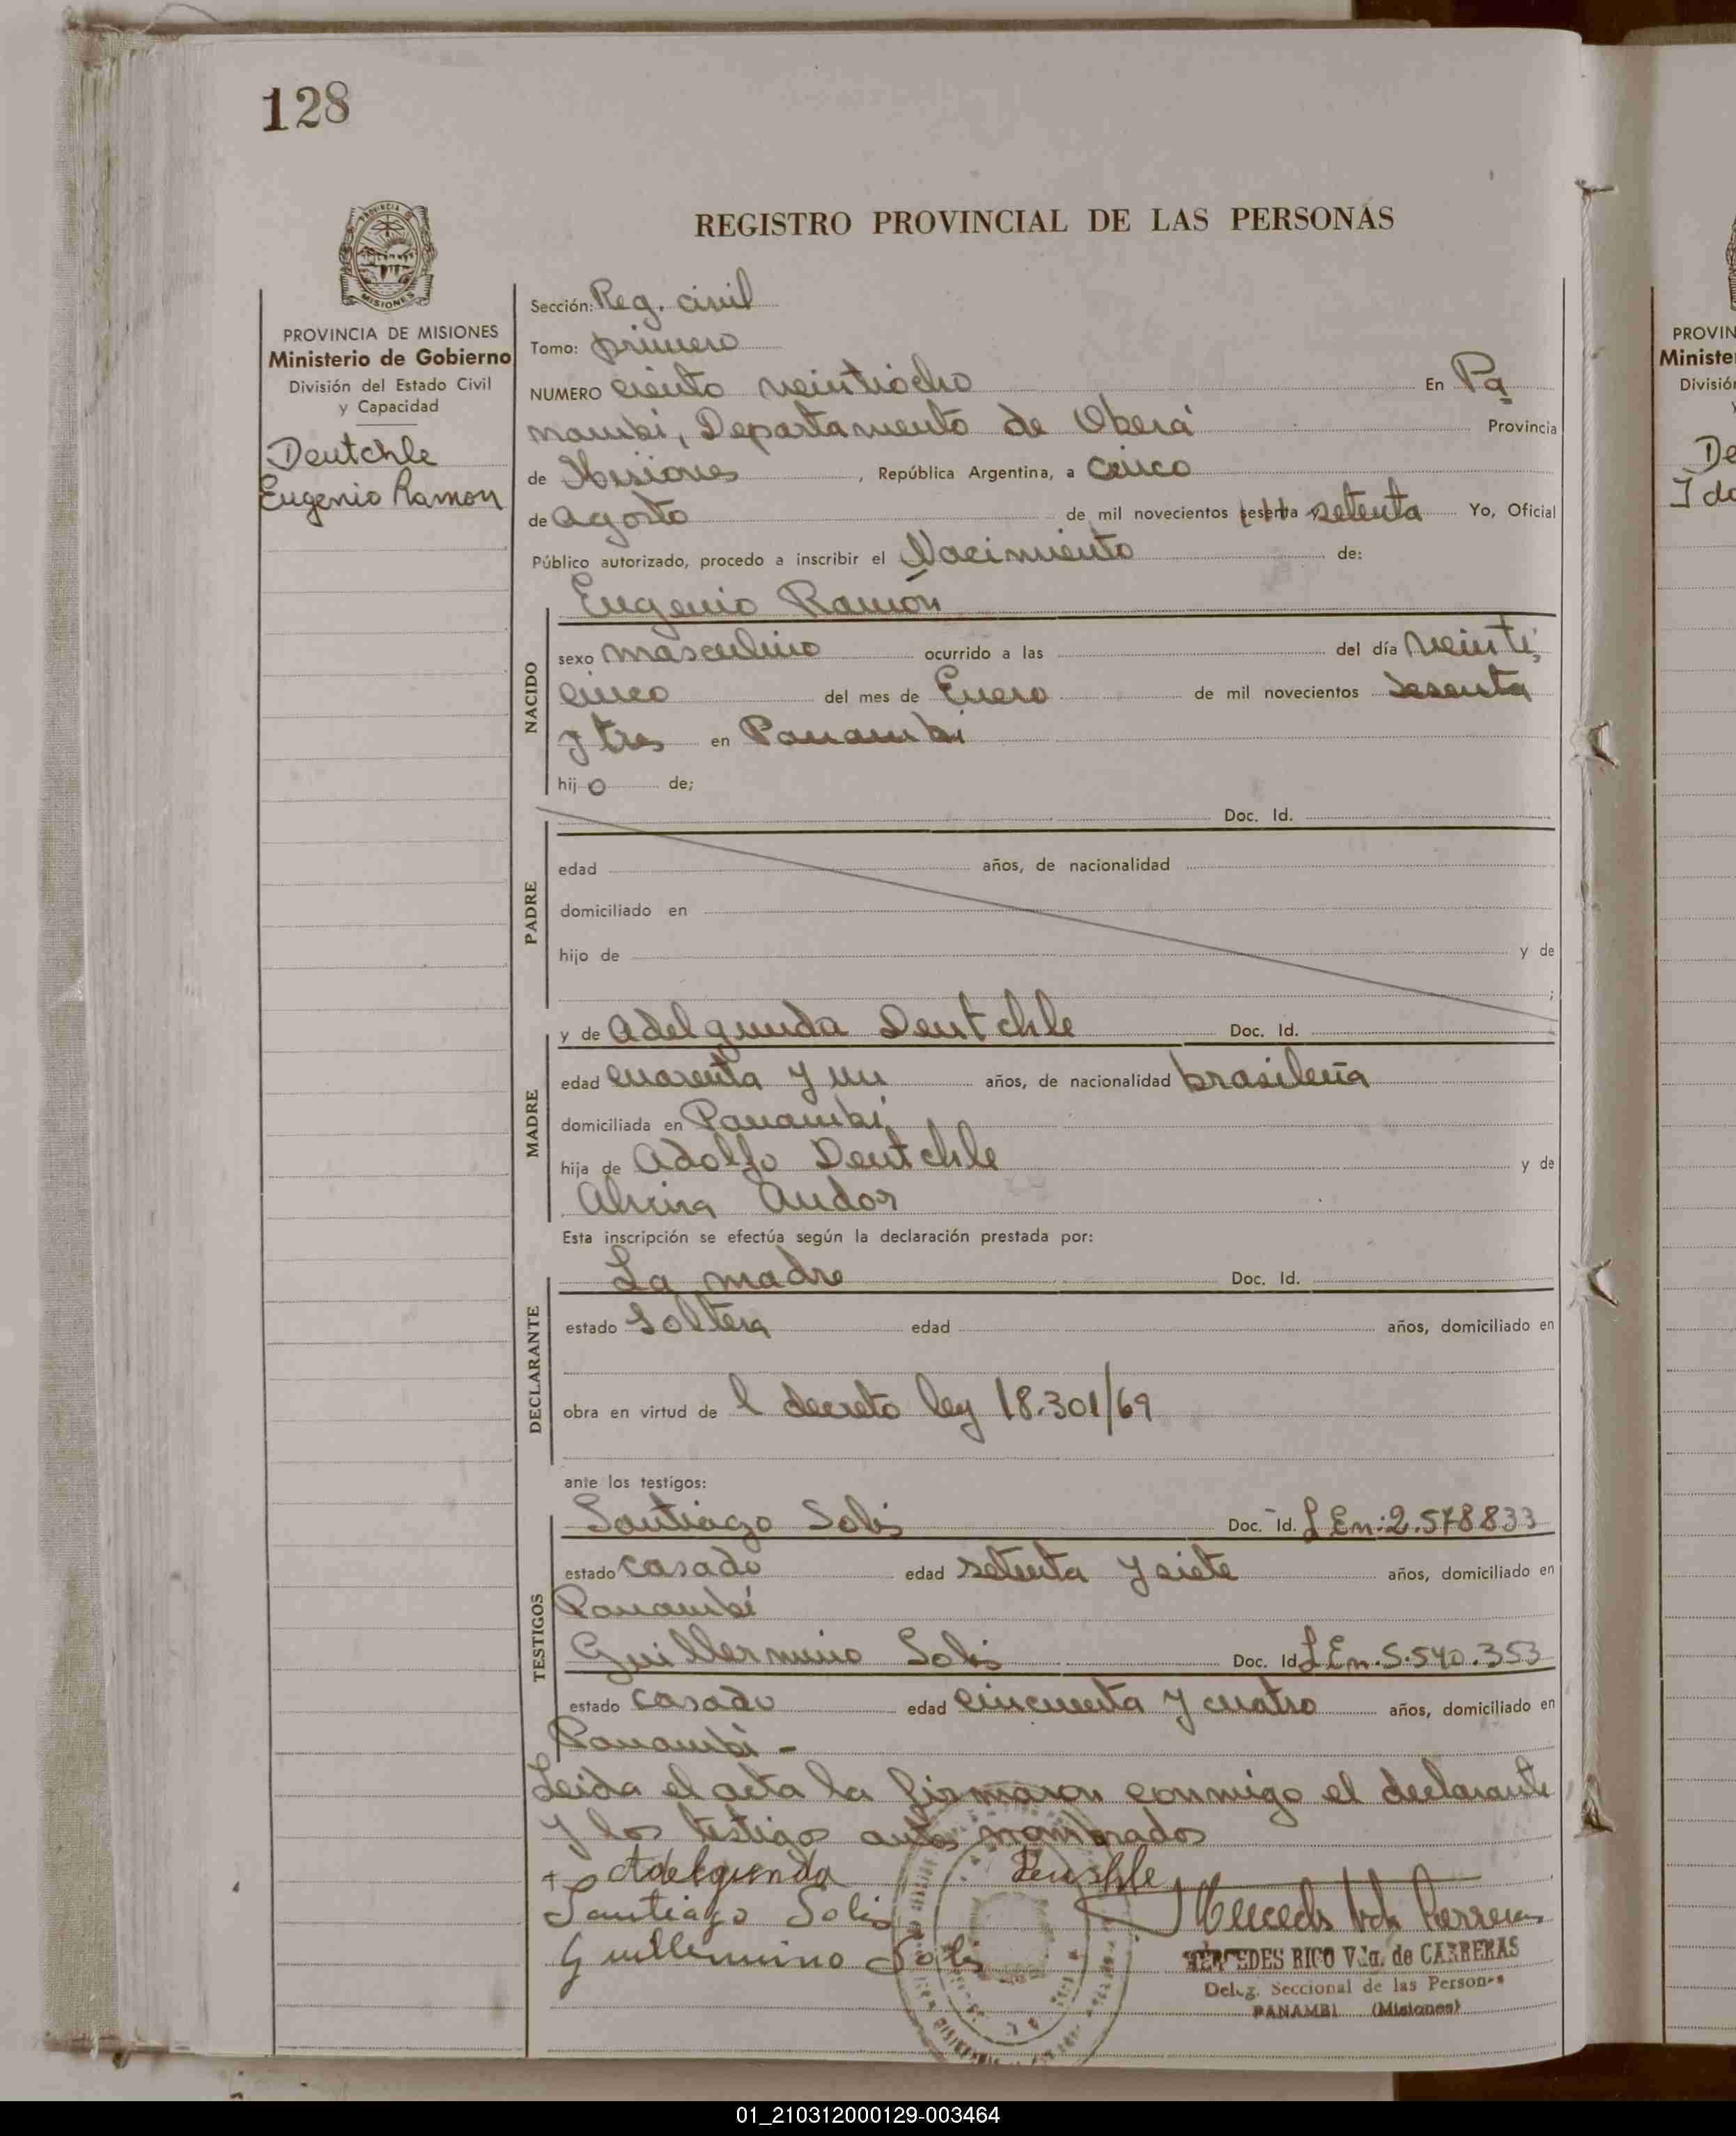 128
REGISTRO PROVINCIAL DE LAS PERSONAS
PROVINCIA DE MISIONES
Ministerio de Gobierno
División del Estado Civil
y Capacidad
Deutchle
Eugenio Ramon
Sección: Reg. civil
Tomo: primero
NUMERO ciento veintiocho En Pa
nambi, Departamento de Oberá Provincia
de Misiones, República Argentina, a cinco
de agosto de mil novecientos sesenta setenta Yo, Oficial
Público autorizado, procedo a inscribir el Nacimiento de:
Eugenio Ramón
NACIDO
sexo masculino ocurrido a las del día veinti
cinco del mes de Enero de mil novecientos sesenta
y tres en Panambi
hijo de;
PADRE
Doc. Id.
edad años, de nacionalidad
domiciliado en
hijo de y de
;
MADRE
y de Adelgunda Deutchle Doc. Id.
edad cuarenta y un años, de nacionalidad brasileña
domiciliada en Panambi
hija de Adolfo Deutchle y de
Alvina Andor
Esta inscripción se efectúa según la declaración prestada por:
DECLARANTE
La madre Doc. Id.
estado Soltera edad años, domiciliado en
obra en virtud de l decreto ley 18.301/69
ante los testigos:
TESTIGOS
Santiago Solis Doc. Id. L En: 2.578833
estado casado edad setenta y siete años, domiciliado en
Panambi
Guillermino Solis Doc. Id. L En. 5.540.353
estado casado edad cincuenta y cuatro años, domiciliado en
Panambi -
Leida el acta la firmaron conmigo el declarante
y los testigos antes nombrados
+ Adelgunda
Santiago Solis
Guillermino Solis
MERCEDES RICO Vda. de CARRERAS
Deleg. Seccional de las Personas
PANAMBI (Misiones)
PROVIN
Ministe
Divisió
De
01_210312000129-003464